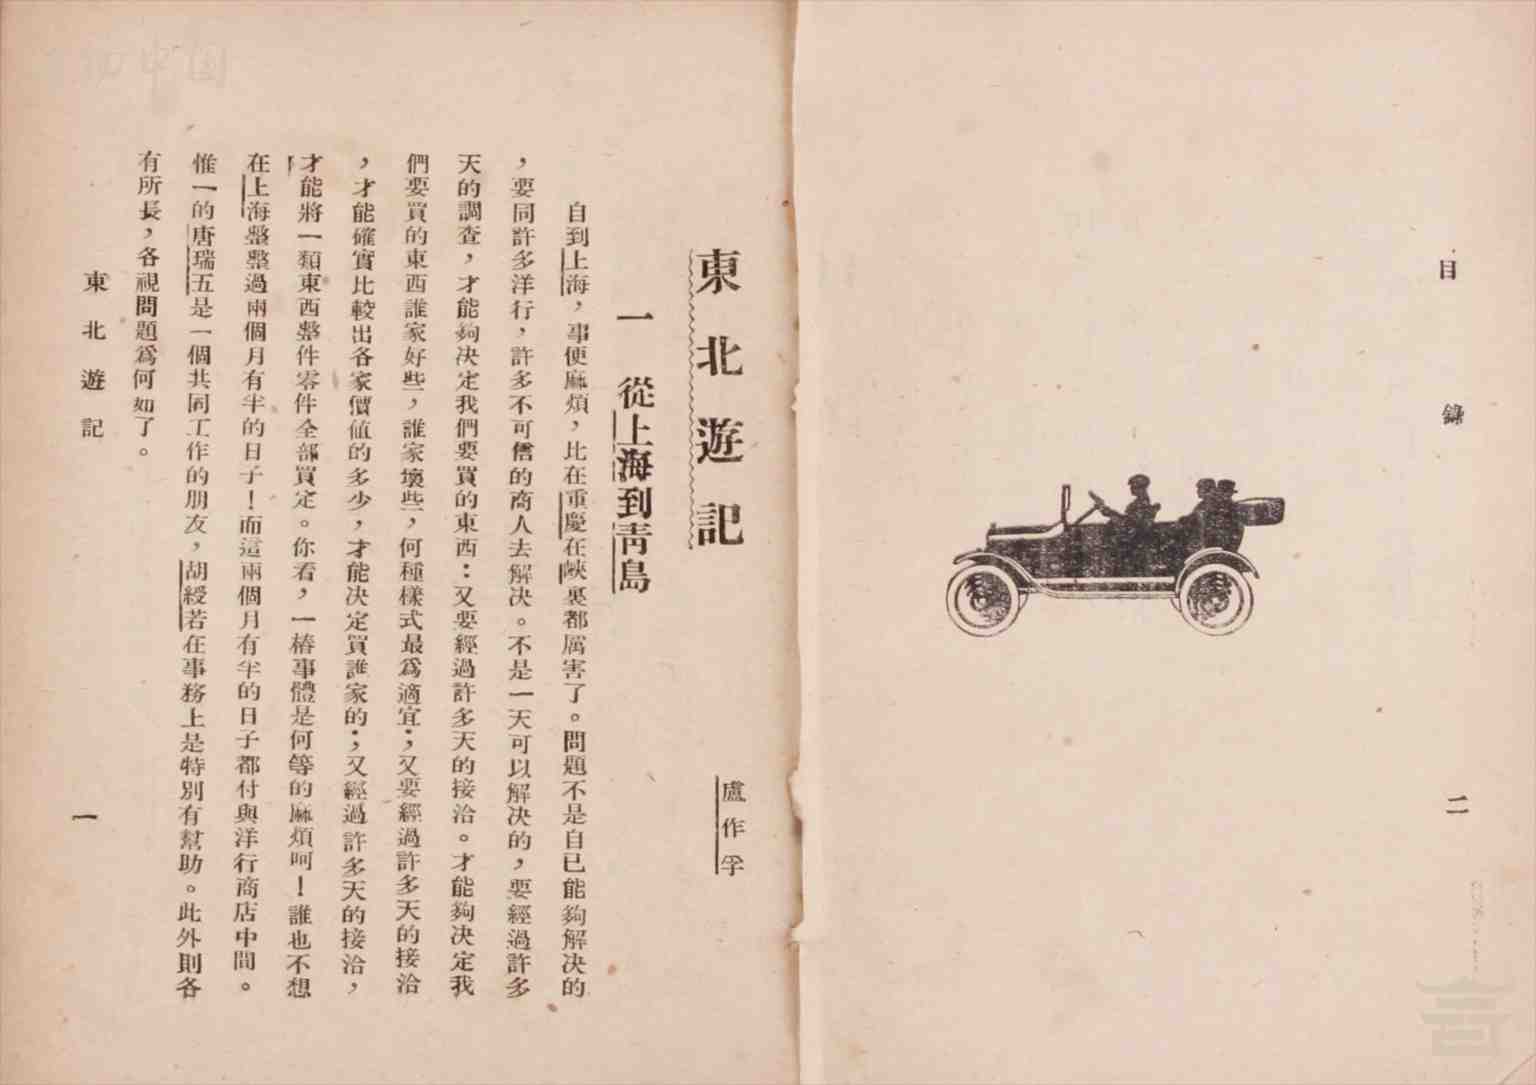 目錄
二
東北遊記
盧作孚
一 從上海到青島
自到上海，事便麻煩，比在重慶在峽裏都厲害了。問題不是自已能夠解決的
，要同許多洋行，許多不可信的商人去解决。不是一天可以解决的，要經過許多
天的調查，才能夠决定我們要買的東西：又要經過許多天的接洽。才能夠决定我
們要買的東西誰家好些，誰家壞些，何種樣式最爲適宜；又要經過許多天的接洽
，才能確實比較出各家價值的多少，才能决定買誰家的；又經過許多天的接洽，
才能將一類東西整件零件全部買定。你看，一樁事體是何等的麻煩呵！誰也不想
在上海整整過兩個月有半的日子！而這兩個月有半的日子都付與洋行商店中間。
惟一的唐瑞五是一個共同工作的朋友，胡綬若在事務上是特別有幫助。此外則各
有所長，各視問題爲何如了。
東北遊記
一